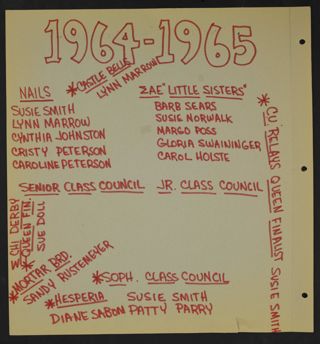 1964-1965
*CASTLE BELLE
LYNN MARROW
NAILS
SUSIE SMITH
LYNN MARROW
CYNTHIA JOHNSTON
CRISTY PETERSON
CAROLINE PETERSON
ΣAE "LITTLE SISTERS"
BARB SEARS
SUSIE NORWALK
MARGO POSS
GLORIA SWAININGER
CAROL HOLSTE
*CU' RELAYS QUEEN FINALIST SUSIE SMITH
SENIOR CLASS COUNCIL
JR. CLASS COUNCIL
CHI DERBY
*QUEEN FIN.
SUE DOLL
*MORTAR BRD.
SANDY RUSTEMEYER
*SOPH. CLASS COUNCIL
SUSIE SMITH
PATTY PARRY
*HESPERIA
DIANE SABON